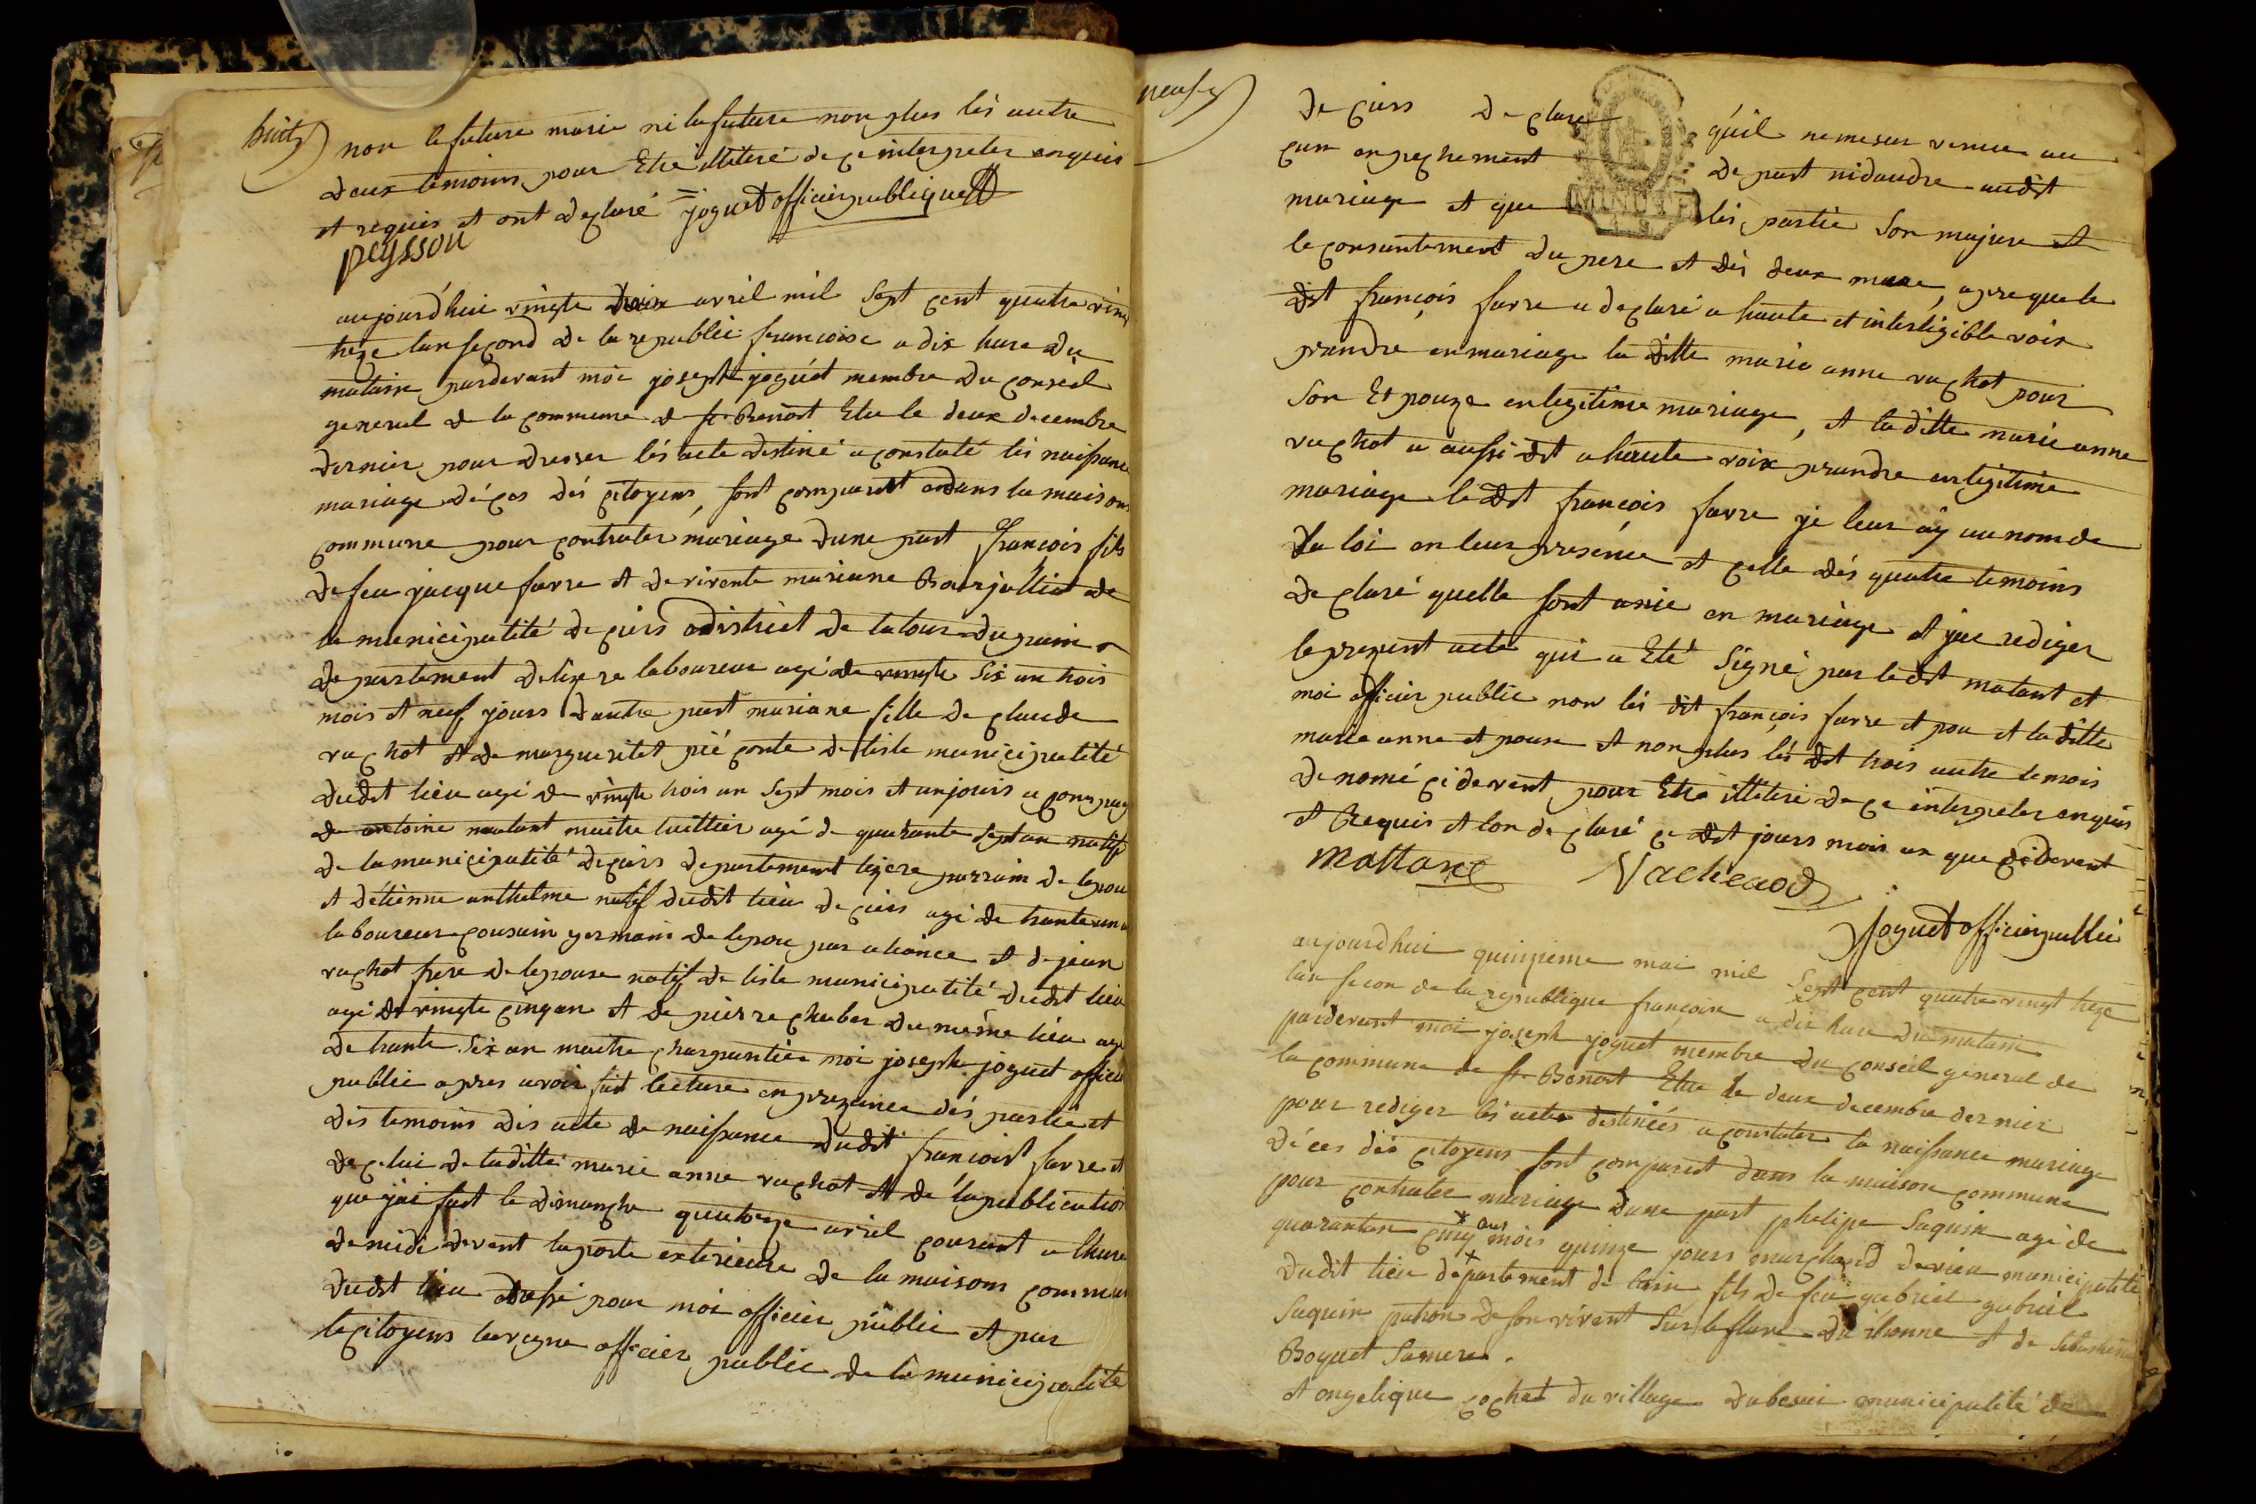 huit
non le future marie ni la future non plus lés autre
deux temoins pour Etre illiteré de ce interpeler enquis
et requis et ont declaré = joguet officier publique
peysson
aujourd'hui vingte trois avril mil Sept cent quatre vint
treze lan second de la republic francoise a dix hure du
matain pardevant moi joseph joguet membre du conseil
general de la commune de st Benoit Elu le deux decembre
dernier pour dresser lés acte destiné a constaté lés naissance
mariage décés dés citoyens, sont comparut dans la maison
commune pour contrater mariage dune part François fils
de feu jacque favre et de vivente mariane Bourjaillat de
la municipalité de ciers district de latour du pain
departement delizere laboureur agé de vingte Six an trois
mois et neuf jours dautre part mariane fille de claude
vachot et de marguerite piéconte de lisle municipalité
dudit lieu agé de vingte trois an Sept mois et un jours acompag
de antoine matant maitre tuillier agé de quarante Sept an natif
de la municipalité deciers departement lizere parrain de lepou
et détienne anthelme natif dudit lieu de ciers agé de trante un
laboureur cousain germain de lepou par aliance et de jean
vachot frere de lepouse natif de lisle municipalité dudit lieu
agé de vingte cinq an et de pierre chaber du même lieu age
de trante Six an maitre charpantiér moi joseph joguet officie
public apres avoir fait lecture en prezance dés partie et
dés temoins dés acte de naissance dudit francoist favre et
de celui de laditte marie anne vachot et de la publication
que j'ai fait le dimanche quatorze avril courant a lhure
de midi devent laporte exterieure de la maisons commun
dudit lieu aussi pour moi officier public et par
le citoyens officier public de la municipalité
neuf
de ciers declare qu'il ne mesur venue au
cun enpechement de part nidaudre audit
mariage et que lés partie Son majure et
le consantement du pere et dés deux mere, apre que le
dit françois favre a declaré a haute et intertigible voix
prandre en mariage la ditte marie anne vachot pour
Son Epouze en legitime mariage, et la ditte marie anne
vachot a aussi dit a haute voix prandre en legitime
mariage le dit françois favre je leur ay au nom de
la loi en leur presénce et celle dés quatre temoins
declaré quelle sont unie en mariage et jai rediger
le present acte qui a Eté Signé par le dit matant et
moi officier public non lés dit françois favre epou et la ditte
marie anne epouse et non plus lés dit trois autre temois
denomé cidevent pour Etre illiteré de ce interpeler enquis
et Requis et lon declaré ce dit jours mois an que cidevent
Mattant Vacheaod
Joguet officier public
aujourdhui quinzieme mai mil Sept cent quatre vingt treze
lan secon de la republique françoise a dix hure du matain
pardevant moi joseph joguet membre du conseil general de
la commune de st Benoit Elu le deux decembre dernier
pour rediger lés actes destinées a constater la naissance mariage
déces dés citoyens sont comparut dans la maison commune
pour contrater mariage dune part phelipe Saquin agé de
quarantan cinq mois quinze jours marchand municipalité
dudit lieu departement de lain fils de feu gabriel gabriel
Saquin patron de son vivent Sur le fluve du rhonne et de
Boguet Samere.
et angelique cochet du village dubesai municipalité de